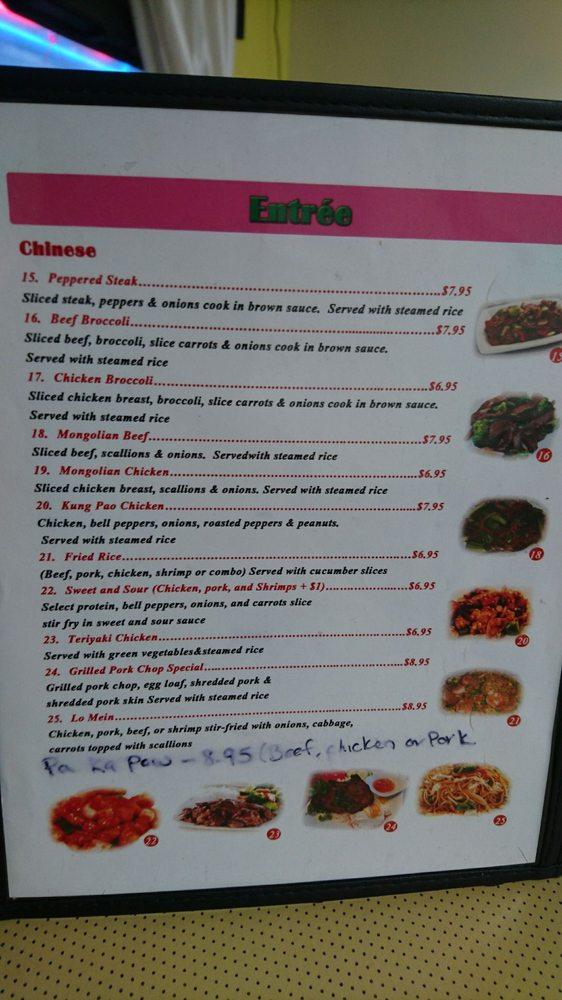 Entrée
Chinese
15. Peppered Steak....................$7.95
Sliced steak, peppers & onions cook in brown sauce. Served with steamed rice
16. Beef Broccoli....................$7.95
Sliced beef, broccoli, slice carrots & onions cook in brown sauce.
Served with steamed rice
17. Chicken Broccoli....................$6.95
Sliced chicken breast, broccoli, slice carrots & onions cook in brown sauce.
Served with steamed rice
18. Mongolian Beef....................$7.95
Sliced beef, scallions & onions. Servedwith steamed rice
19. Mongolian Chicken....................$6.95
Sliced chicken breast, scallions & onions. Served with steamed rice
20. Kung Pao Chicken....................$7.95
Chicken, bell peppers, onions, roasted peppers & peanuts.
Served with steamed rice
21. Fried Rice....................$6.95
(Beef, pork, chicken, shrimp or combo) Served with cucumber slices
22. Sweet and Sour (Chicken, pork, and Shrimps + $1)....................$6.95
Select protein, bell peppers, onions, and carrots slice
stir fry in sweet and sour sauce
23. Teriyaki Chicken....................$6.95
Served with green vegetables&steamed rice
24. Grilled Pork Chop Special....................$8.95
Grilled pork chop, egg loaf, shredded pork &
shredded pork skin Served with steamed rice
25. Lo Mein....................$8.95
Chicken, pork, beef, or shrimp stir-fried with onions, cabbage,
carrots topped with scallions
Pa Ka Pow - 8.95 (Beef, chicken or Pork
15
16
18
20
21
22
23
24
25